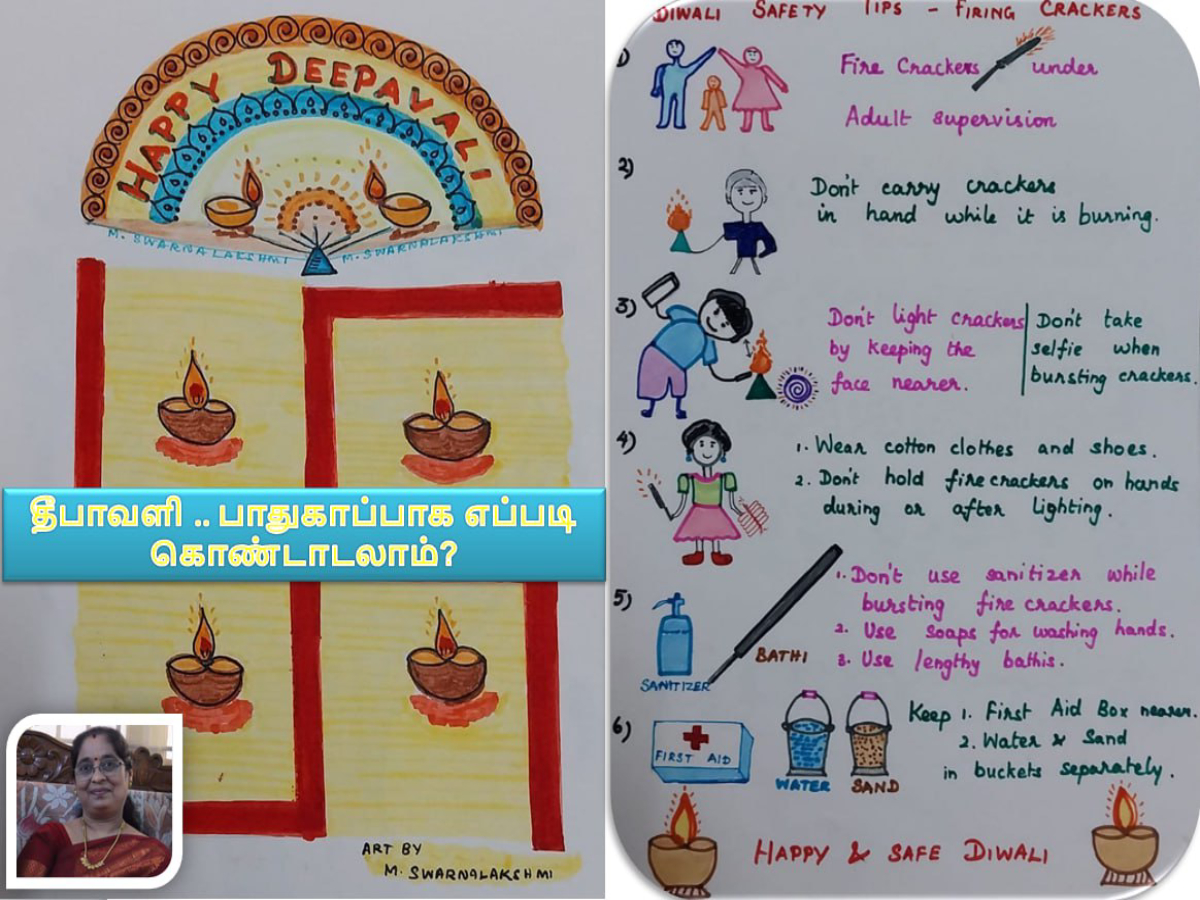 HAPPY DEEPAVALI
M. SWARNALAKSHMI M. SWARNALAKSHMI
தீபாவளி .. பாதுகாப்பாக எப்படி
கொண்டாடலாம்?
ART BY
M. SWARNALAKSHMI
DIWALI SAFETY TIPS - FIRING CRACKERS
1)
Fire Crackers under
Adult supervision
2)
Don't carry crackers
in hand while it is burning.
3)
Don't light crackers
by keeping the
face nearer.
Don't take
selfie when
bursting crackers.
4)
1. Wear cotton clothes and shoes.
2. Don't hold firecrackers on hands
during or after lighting.
5)
SANITIZER
BATHI
1. Don't use sanitizer while
bursting fire crackers.
2. Use soaps for washing hands.
3. Use lengthy bathis.
6)
FIRST AID
WATER SAND
Keep 1. First Aid Box nearer.
2. Water & Sand
in buckets separately.
HAPPY & SAFE DIWALI